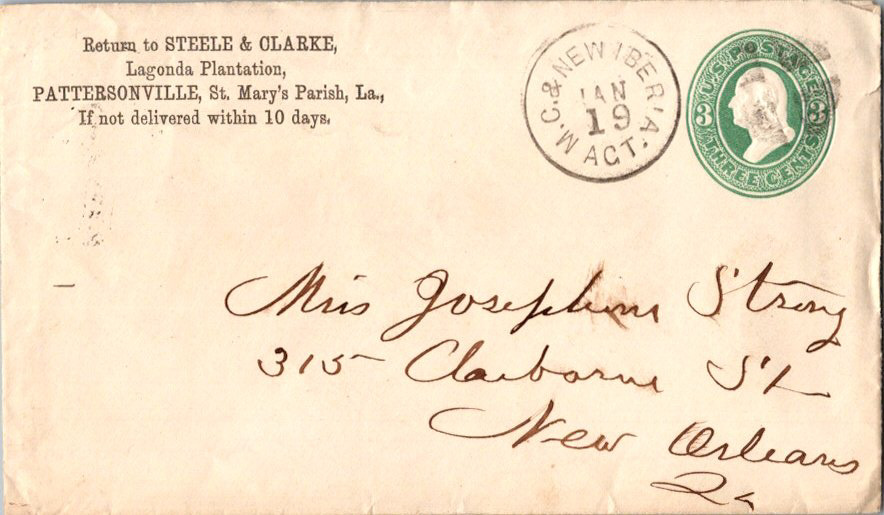 Return to STEELE & CLARKE,
Lagonda Plantation,
PATTERSONVILLE, St. Mary's Parish, La.,
If not delivered within 10 days.
M.C. & NEW IBERIA.
JAN
19
AGT.
U.S. POSTAGE
3 3
THREE CENTS
Miss Josephine Strong
315 Claiborne St
New Orleans
La